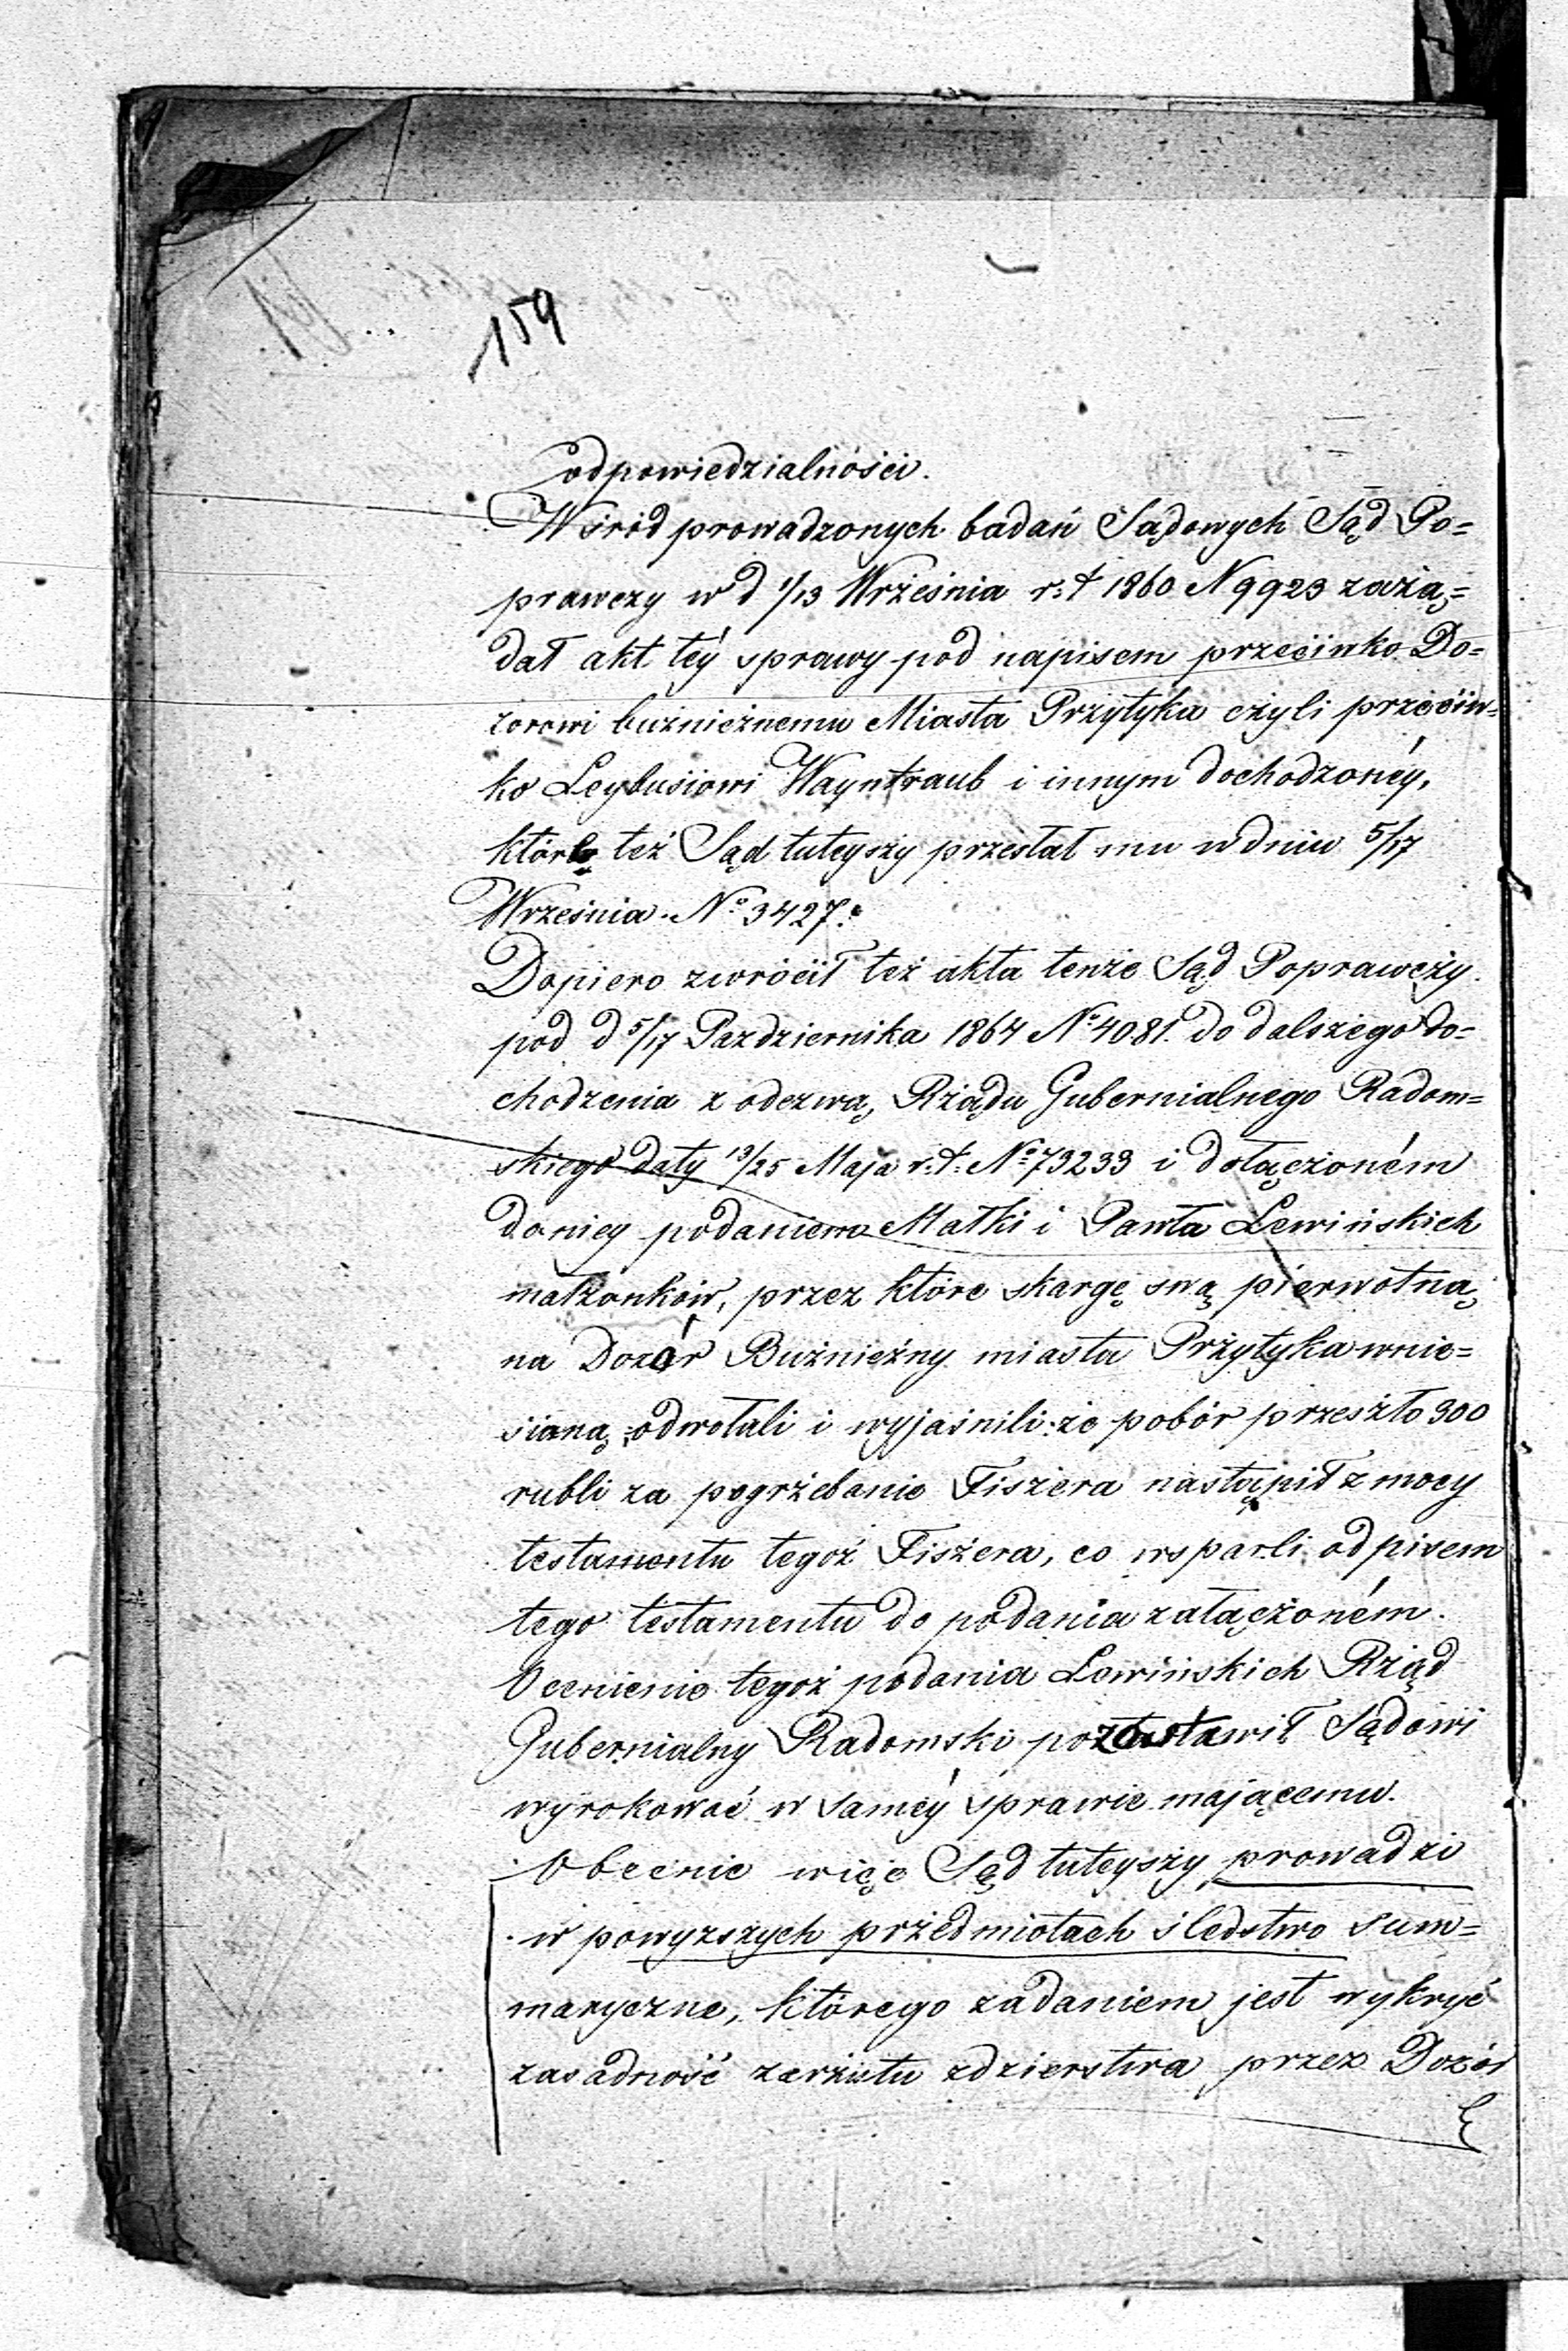 159
odpowiedzialności.
Wśród prowadzonych badań Sądowych Sąd Po=
prawczy w d 1/13 Września r. t 1860 N 9923 zażą=
dał akt téy sprawy pod napisem przeciwko Do=
zorowi bużnicznemu Miasta Przytyka czyli przeciw=
ko Leybusiowi Wayntraub i innym dochodzonéy,
które też Sąd tuteyszy przesłał mu w dniu 5/17
Września. No 3427.
Dopiero zwrócił też akta tenże Sąd Poprawczy
pod d 5/17 Pazdziernika 1864 No 4081. do dalszego do=
chodzenia z odezwą, Rządu Gubernialnego Radom=
skiego daty 13/25 Maja r. t. No 73233 i dołączoném
do niey podaniem Matki i Pawła Lewińskich
małżonków, przez które skargę swą pierwotną
na Dozór Bużniczny miasta Przytyka wnie=
sioną odwołali i wyjaśnili: że pobór przeszło 300
rubli za pogrzebanie Fiszera nastąpił z mocy
testamentu tegoż Fiszera, co wsparli odpisem
tego testamentu do podania załączoném.
Ocenienie tegoż podania Lewińskich Rząd
Gubernialny Radomski pozostawił Sądowi
wyrokować w saméy sprawie mającemu.
Obecnie więc Sąd tuteyszy prowadzi
w powyzszych przedmiotach śledstwo sum=
maryczne, którego zadaniem jest wykryć
zasadność zarzutu zdzierstwa przez Dozór